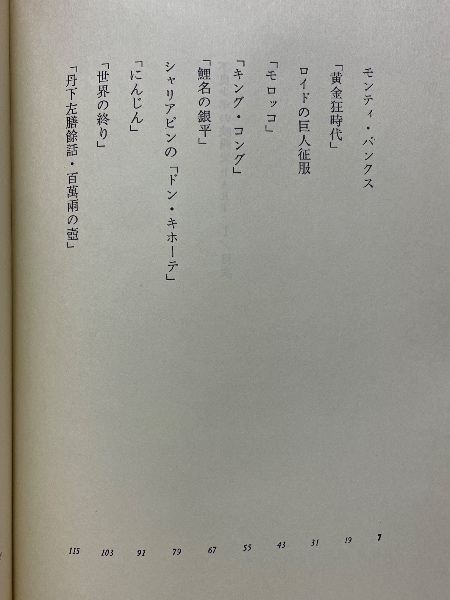 モンティ・バンクス 7
「黄金狂時代」 19
ロイドの巨人征服 31
「モロッコ」 43
「キング・コング」 55
「鯉名の銀平」 67
シャリアピンの「ドン・キホーテ」 79
「にんじん」 91
「世界の終り」 103
「丹下左膳餘話・百萬兩の壺」 115